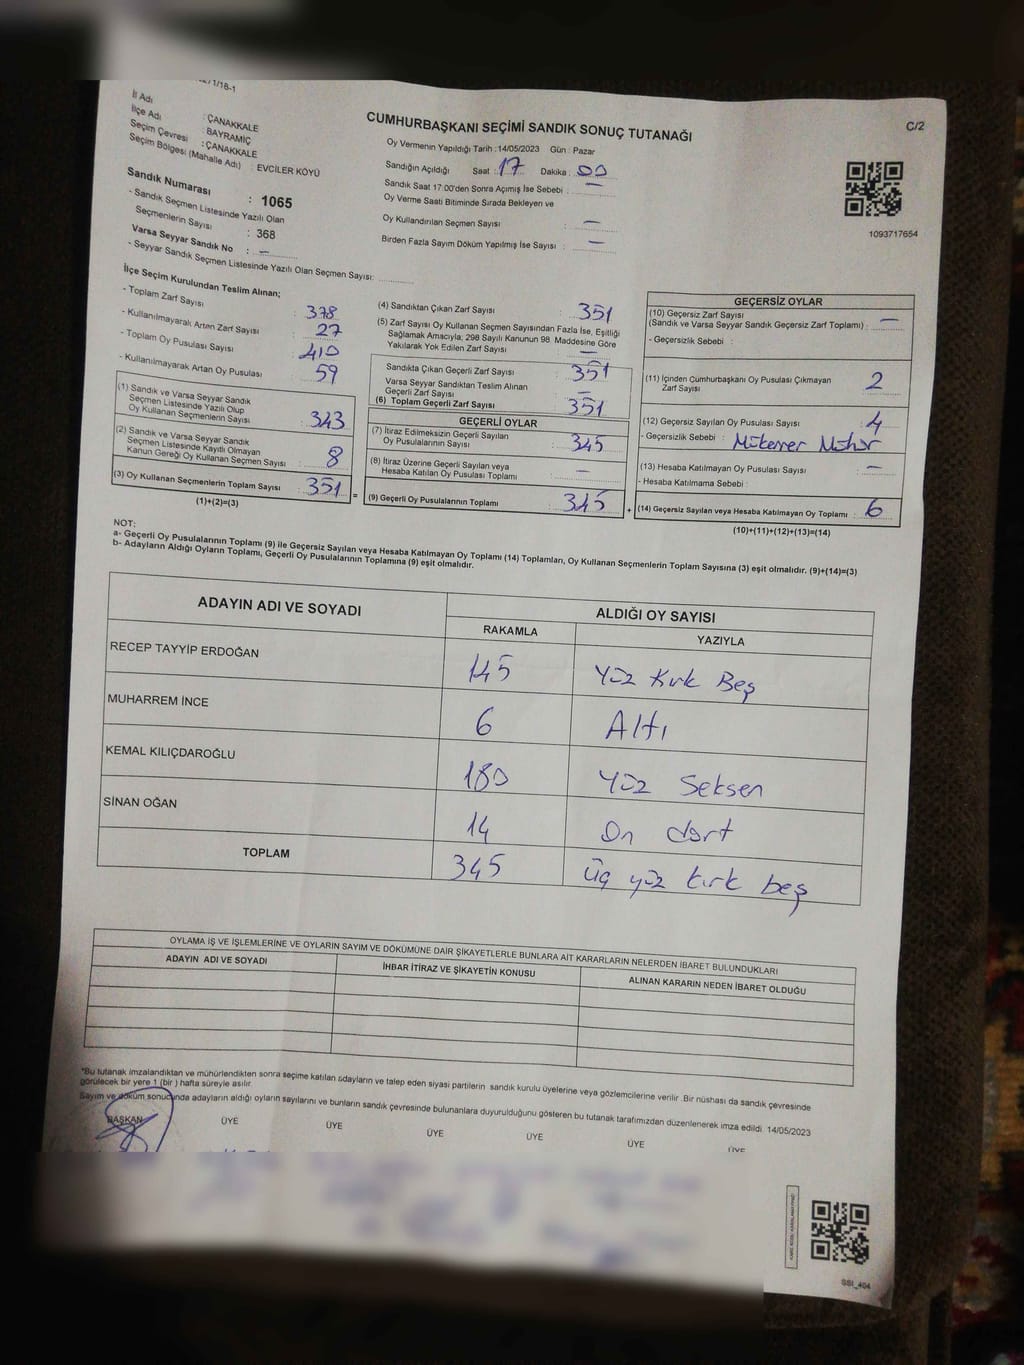 CUMHURBAŞKANI SEÇİMİ SANDIK SONUÇ TUTANAĞI
C/2
İl Adı : ÇANAKKALE
İlçe Adı : BAYRAMİÇ
Seçim Çevresi : ÇANAKKALE
Seçim Bölgesi (Mahalle Adı) : EVCİLER KÖYÜ
Sandık Numarası : 1065
- Sandık Seçmen Listesinde Yazılı Olan
Seçmenlerin Sayısı : 368
Varsa Seyyar Sandık No : –
- Seyyar Sandık Seçmen Listesinde Yazılı Olan Seçmen Sayısı:
Oy Vermenin Yapıldığı Tarih :14/05/2023 Gün : Pazar
Sandığın Açıldığı Saat : 17 Dakika : 00
Sandık Saat 17:00'den Sonra Açımış İse Sebebi : –
Oy Verme Saati Bitiminde Sırada Bekleyen ve
Oy Kullandırılan Seçmen Sayısı : –
Birden Fazla Sayım Döküm Yapılmış İse Sayısı : –
1093717654
İlçe Seçim Kurulundan Teslim Alınan;
- Toplam Zarf Sayısı : 378
- Kullanılmayarak Artan Zarf Sayısı : 27
- Toplam Oy Pusulası Sayısı : 410
- Kullanılmayarak Artan Oy Pusulası : 59
(1) Sandık ve Varsa Seyyar Sandık
Seçmen Listesinde Yazılı Olup
Oy Kullanan Seçmenlerin Sayısı : 343
(2) Sandık ve Varsa Seyyar Sandık
Seçmen Listesinde Kayıtlı Olmayan
Kanun Gereği Oy Kullanan Seçmen Sayısı : 8
(3) Oy Kullanan Seçmenlerin Toplam Sayısı : 351
(1)+(2)=(3)
(4) Sandıktan Çıkan Zarf Sayısı : 351
(5) Zarf Sayısı Oy Kullanan Seçmen Sayısından Fazla İse, Eşitliği
Sağlamak Amacıyla; 298 Sayılı Kanunun 98 Maddesine Göre
Yakılarak Yok Edilen Zarf Sayısı : –
Sandıkta Çıkan Geçerli Zarf Sayısı : 351
Varsa Seyyar Sandıktan Teslim Alınan
Geçerli Zarf Sayısı : –
(6) Toplam Geçerli Zarf Sayısı : 351
GEÇERLİ OYLAR
(7) İtiraz Edilmeksizin Geçerli Sayılan
Oy Pusulalarının Sayısı : 345
(8) İtiraz Üzerine Geçerli Sayılan veya
Hesaba Katılan Oy Pusulası Toplamı : –
= (9) Geçerli Oy Pusulalarının Toplamı : 345
GEÇERSİZ OYLAR
(10) Geçersiz Zarf Sayısı
(Sandık ve Varsa Seyyar Sandık Geçersiz Zarf Toplamı) : –
- Geçersizlik Sebebi :
(11) İçinden Cumhurbaşkanı Oy Pusulası Çıkmayan
Zarf Sayısı : 2
(12) Geçersiz Sayılan Oy Pusulası Sayısı : 4
- Geçersizlik Sebebi : Mükerrer Mühür
(13) Hesaba Katılmayan Oy Pusulası Sayısı : –
- Hesaba Katılmama Sebebi :
+ (14) Geçersiz Sayılan veya Hesaba Katılmayan Oy Toplamı : 6
(10)+(11)+(12)+(13)=(14)
NOT:
a- Geçerli Oy Pusulalarının Toplamı (9) ile Geçersiz Sayılan veya Hesaba Katılmayan Oy Toplamı (14) Toplamları, Oy Kullanan Seçmenlerin Toplam Sayısına (3) eşit olmalıdır. (9)+(14)=(3)
b- Adayların Aldığı Oyların Toplamı, Geçerli Oy Pusulalarının Toplamına (9) eşit olmalıdır.
ADAYIN ADI VE SOYADI ALDIĞI OY SAYISI
RAKAMLA YAZIYLA
RECEP TAYYİP ERDOĞAN 145 Yüz Kırk Beş
MUHARREM İNCE 6 Altı
KEMAL KILIÇDAROĞLU 180 Yüz Seksen
SİNAN OĞAN 14 On dört
TOPLAM 345 Üç yüz kırk beş
OYLAMA İŞ VE İŞLEMLERİNE VE OYLARIN SAYIM VE DÖKÜMÜNE DAİR ŞİKAYETLERLE BUNLARA AİT KARARLARIN NELERDEN İBARET BULUNDUKLARI
ADAYIN ADI VE SOYADI İHBAR İTİRAZ VE ŞİKAYETİN KONUSU ALINAN KARARIN NEDEN İBARET OLDUĞU
*Bu tutanak imzalandıktan ve mühürlendikten sonra seçime katılan adayların ve talep eden siyasi partilerin sandık kurulu üyelerine veya gözlemcilerine verilir .Bir nüshası da sandık çevresinde
görülecek bir yere 1 (bir ) hafta süreyle asılır.
Sayım ve döküm sonucunda adayların aldığı oyların sayılarını ve bunların sandık çevresinde bulunanlara duyurulduğunu gösteren bu tutanak tarafımızdan düzenlenerek imza edildi. 14/05/2023
BAŞKAN ÜYE ÜYE ÜYE ÜYE ÜYE ÜYE
SSI_404